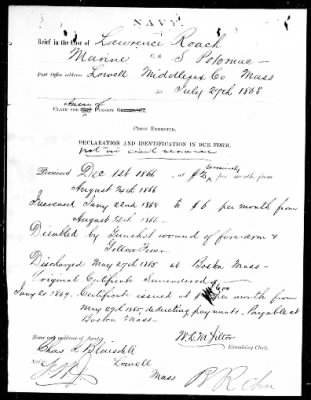 NAVY.
Brief in the Case of Lawrence Roach
Marine U.S. S Potomac
Post Office address: Lowell Middlesex Co Mass
July 27th 1868
CLAIM FOR PENSION
PROOF EXHIBITED.
DECLARATION AND IDENTIFICATION IN DUE FORM.
not in civil service
Pensioned Dec 1st 1866 at per month from
August 20th 1866
Increased Jany 22nd 1868 to $6 per month from
August 22nd 1866
Disabled by Gunshot wound of forearm &
Yellow Fever
Discharged May 29th 1865 at Boston Mass
Original Certificate Surrendered
Jany 21 1869. Certificate issued at per month from
May 29th 1865 deducting payments, Payable at
Boston Mass
Name and address of party:
Chas L Blaisdell
Examining Clerk.
Lowell
Mass